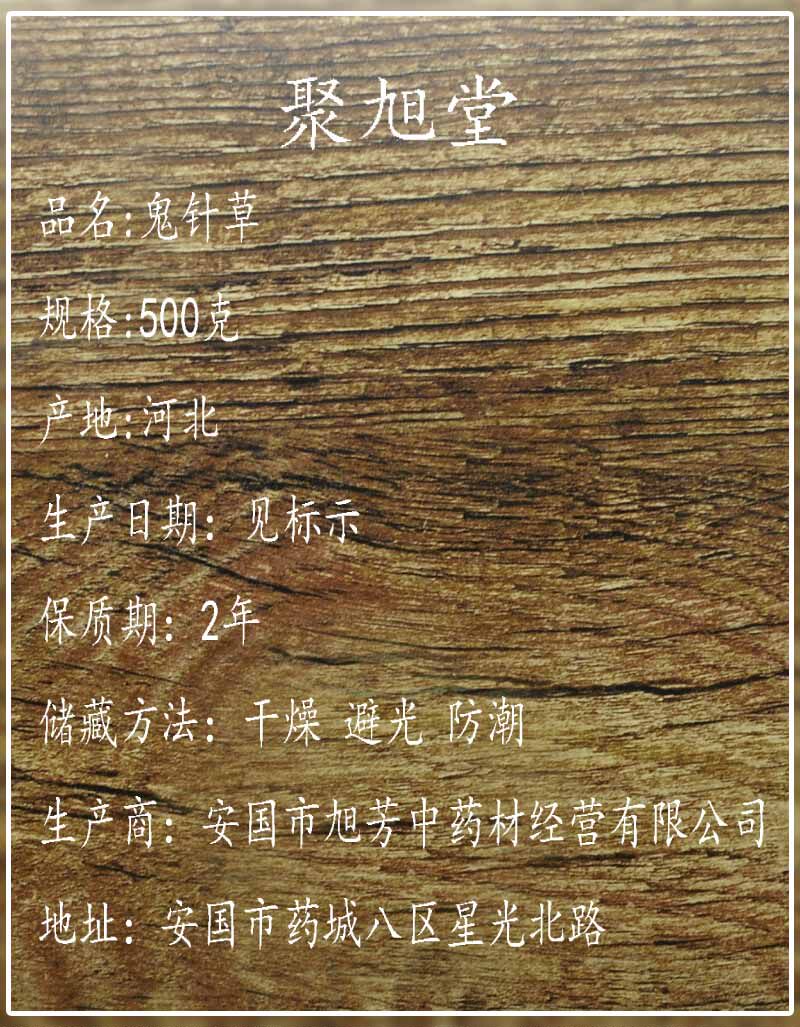 聚旭堂
品名:鬼针草
规格:500克
产地:河北
生产日期：见标示
保质期：2年
储藏方法：干燥 避光 防潮
生产商：安国市旭芳中药材经营有限公司
地址：安国市药城八区星光北路